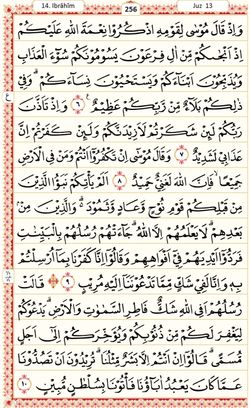 14. Ibrāhīm 256 Juz 13
وَاِذْ قَالَ مُوْسٰى لِقَوْمِهِ اذْكُرُوْا نِعْمَةَ اللّٰهِ عَلَيْكُمْ
اِذْ اَنْجٰىكُمْ مِّنْ اٰلِ فِرْعَوْنَ يَسُوْمُوْنَكُمْ سُوْۤءَ الْعَذَابِ
وَيُذَبِّحُوْنَ اَبْنَاۤءَكُمْ وَيَسْتَحْيُوْنَ نِسَاۤءَكُمْ ۗ وَفِيْ
ذٰلِكُمْ بَلَاۤءٌ مِّنْ رَّبِّكُمْ عَظِيْمٌ ࣖ ٦ وَاِذْ تَاَذَّنَ
رَبُّكُمْ لَىِٕنْ شَكَرْتُمْ لَاَزِيْدَنَّكُمْ وَلَىِٕنْ كَفَرْتُمْ اِنَّ
عَذَابِيْ لَشَدِيْدٌ ٧ وَقَالَ مُوْسٰٓى اِنْ تَكْفُرُوْٓا اَنْتُمْ وَمَنْ فِى الْاَرْضِ
جَمِيْعًا ۙ فَاِنَّ اللّٰهَ لَغَنِيٌّ حَمِيْدٌ ٨ اَلَمْ يَأْتِكُمْ نَبَؤُا الَّذِيْنَ
مِنْ قَبْلِكُمْ قَوْمِ نُوْحٍ وَّعَادٍ وَّثَمُوْدَ ۗ وَالَّذِيْنَ مِنْۢ
بَعْدِهِمْ ۗ لَا يَعْلَمُهُمْ اِلَّا اللّٰهُ ۗ جَاۤءَتْهُمْ رُسُلُهُمْ بِالْبَيِّنٰتِ
فَرَدُّوْٓا اَيْدِيَهُمْ فِيْٓ اَفْوَاهِهِمْ وَقَالُوْٓا اِنَّا كَفَرْنَا بِمَآ اُرْسِلْتُمْ
بِهٖ وَاِنَّا لَفِيْ شَكٍّ مِّمَّا تَدْعُوْنَنَآ اِلَيْهِ مُرِيْبٍ ٩ قَالَتْ
رُسُلُهُمْ اَفِى اللّٰهِ شَكٌّ فَاطِرِ السَّمٰوٰتِ وَالْاَرْضِ ۗ يَدْعُوْكُمْ
لِيَغْفِرَ لَكُمْ مِّنْ ذُنُوْبِكُمْ وَيُؤَخِّرَكُمْ اِلٰٓى اَجَلٍ
مُّسَمًّى ۗ قَالُوْٓا اِنْ اَنْتُمْ اِلَّا بَشَرٌ مِّثْلُنَا ۗ تُرِيْدُوْنَ اَنْ تَصُدُّوْنَا
عَمَّا كَانَ يَعْبُدُ اٰبَاۤؤُنَا فَأْتُوْنَا بِسُلْطٰنٍ مُّبِيْنٍ ١٠